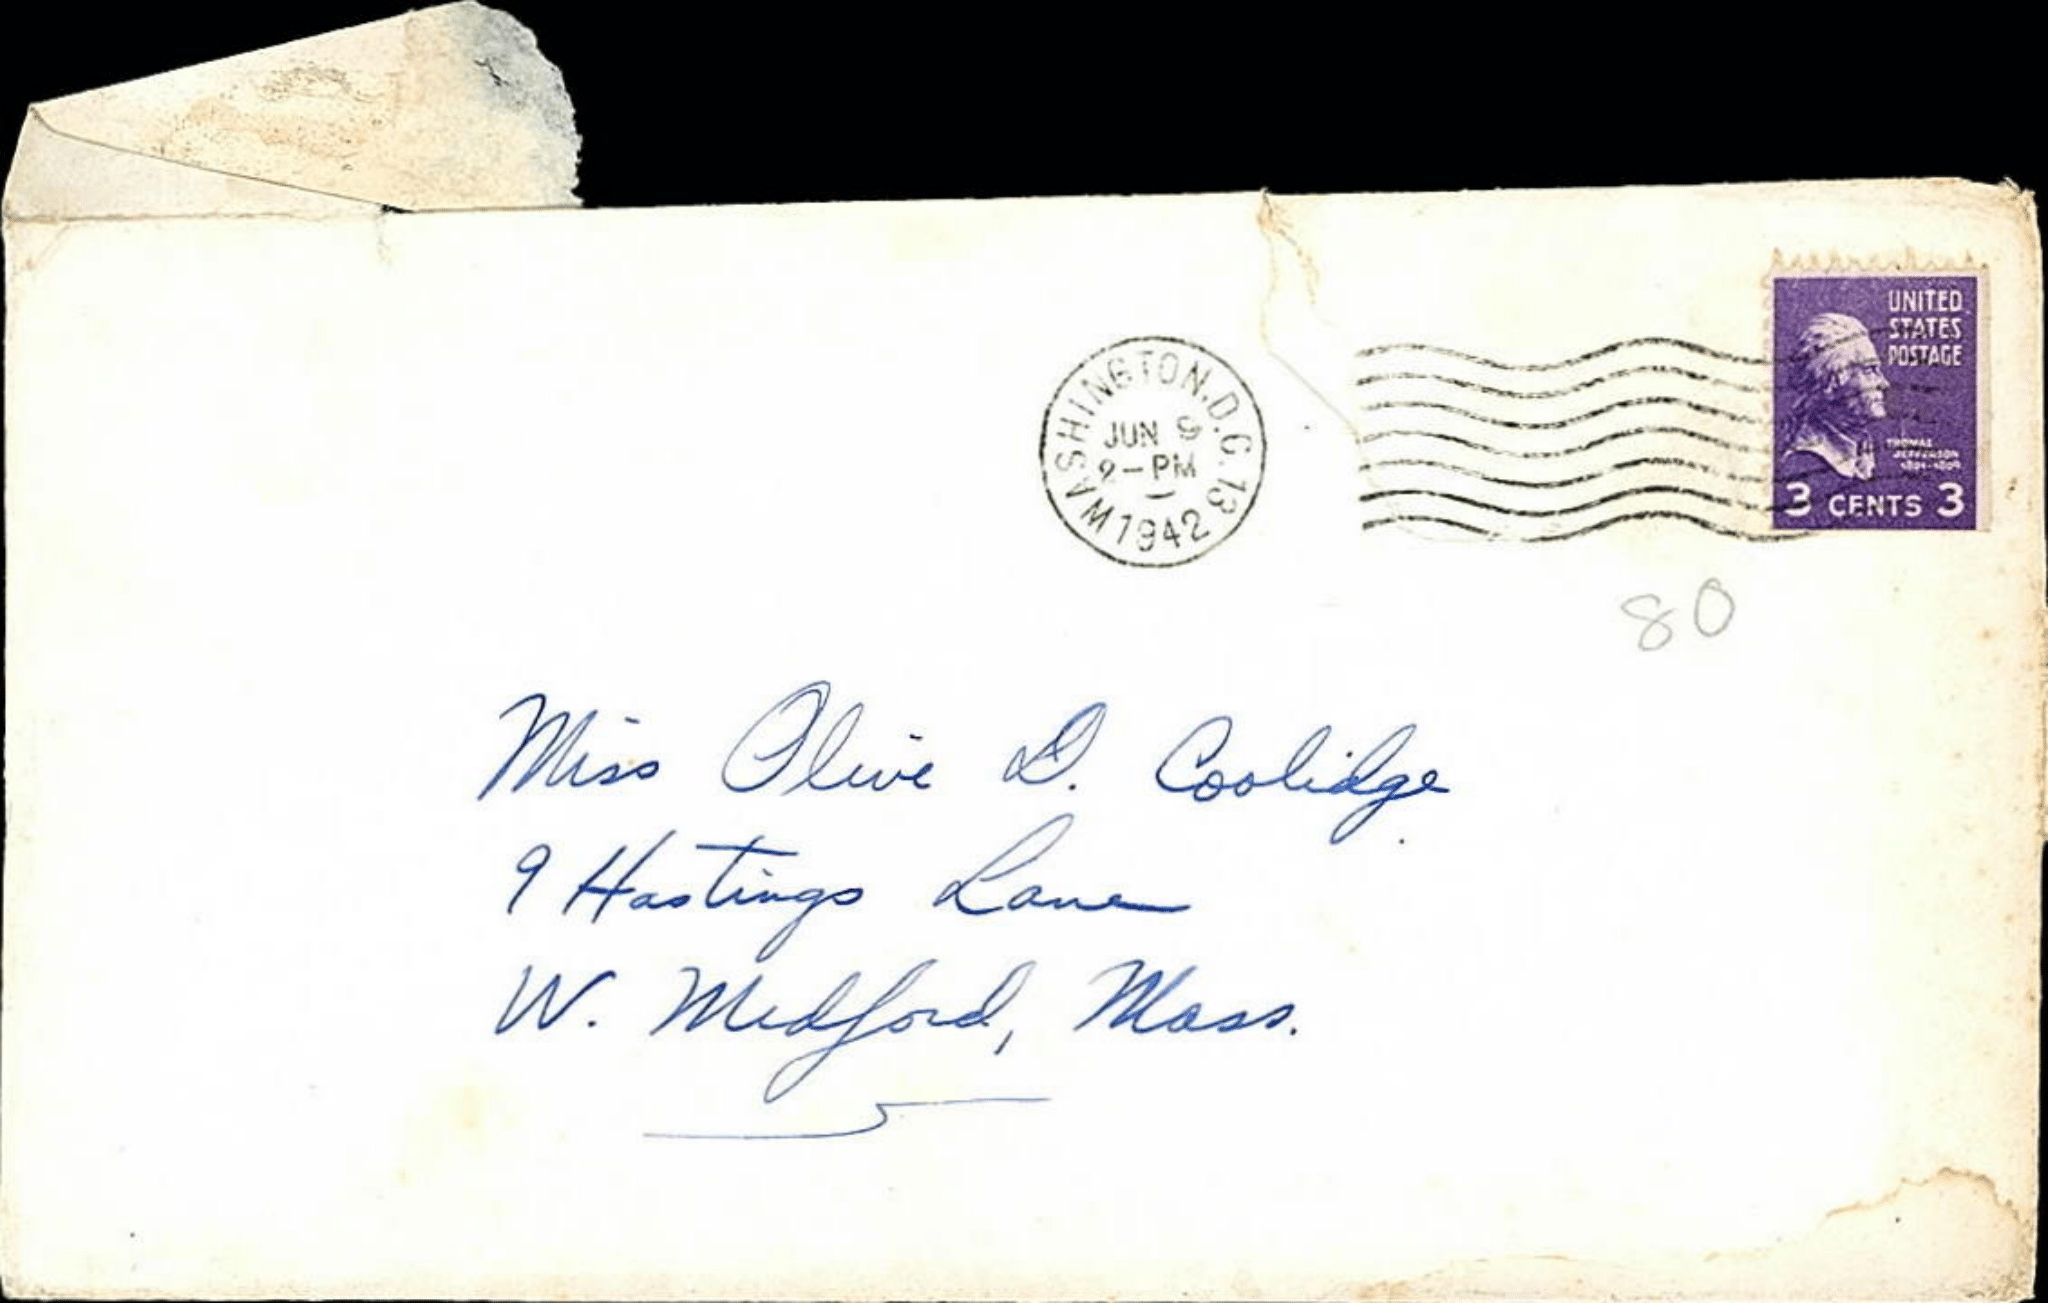 WASHINGTON, D.C. 13
JUN 9
2-PM
1942
UNITED
STATES
POSTAGE
THOMAS
JEFFERSON
1801-1809
3 CENTS 3
80
Miss Olive D. Coolidge
9 Hastings Lane
W. Medford, Mass.